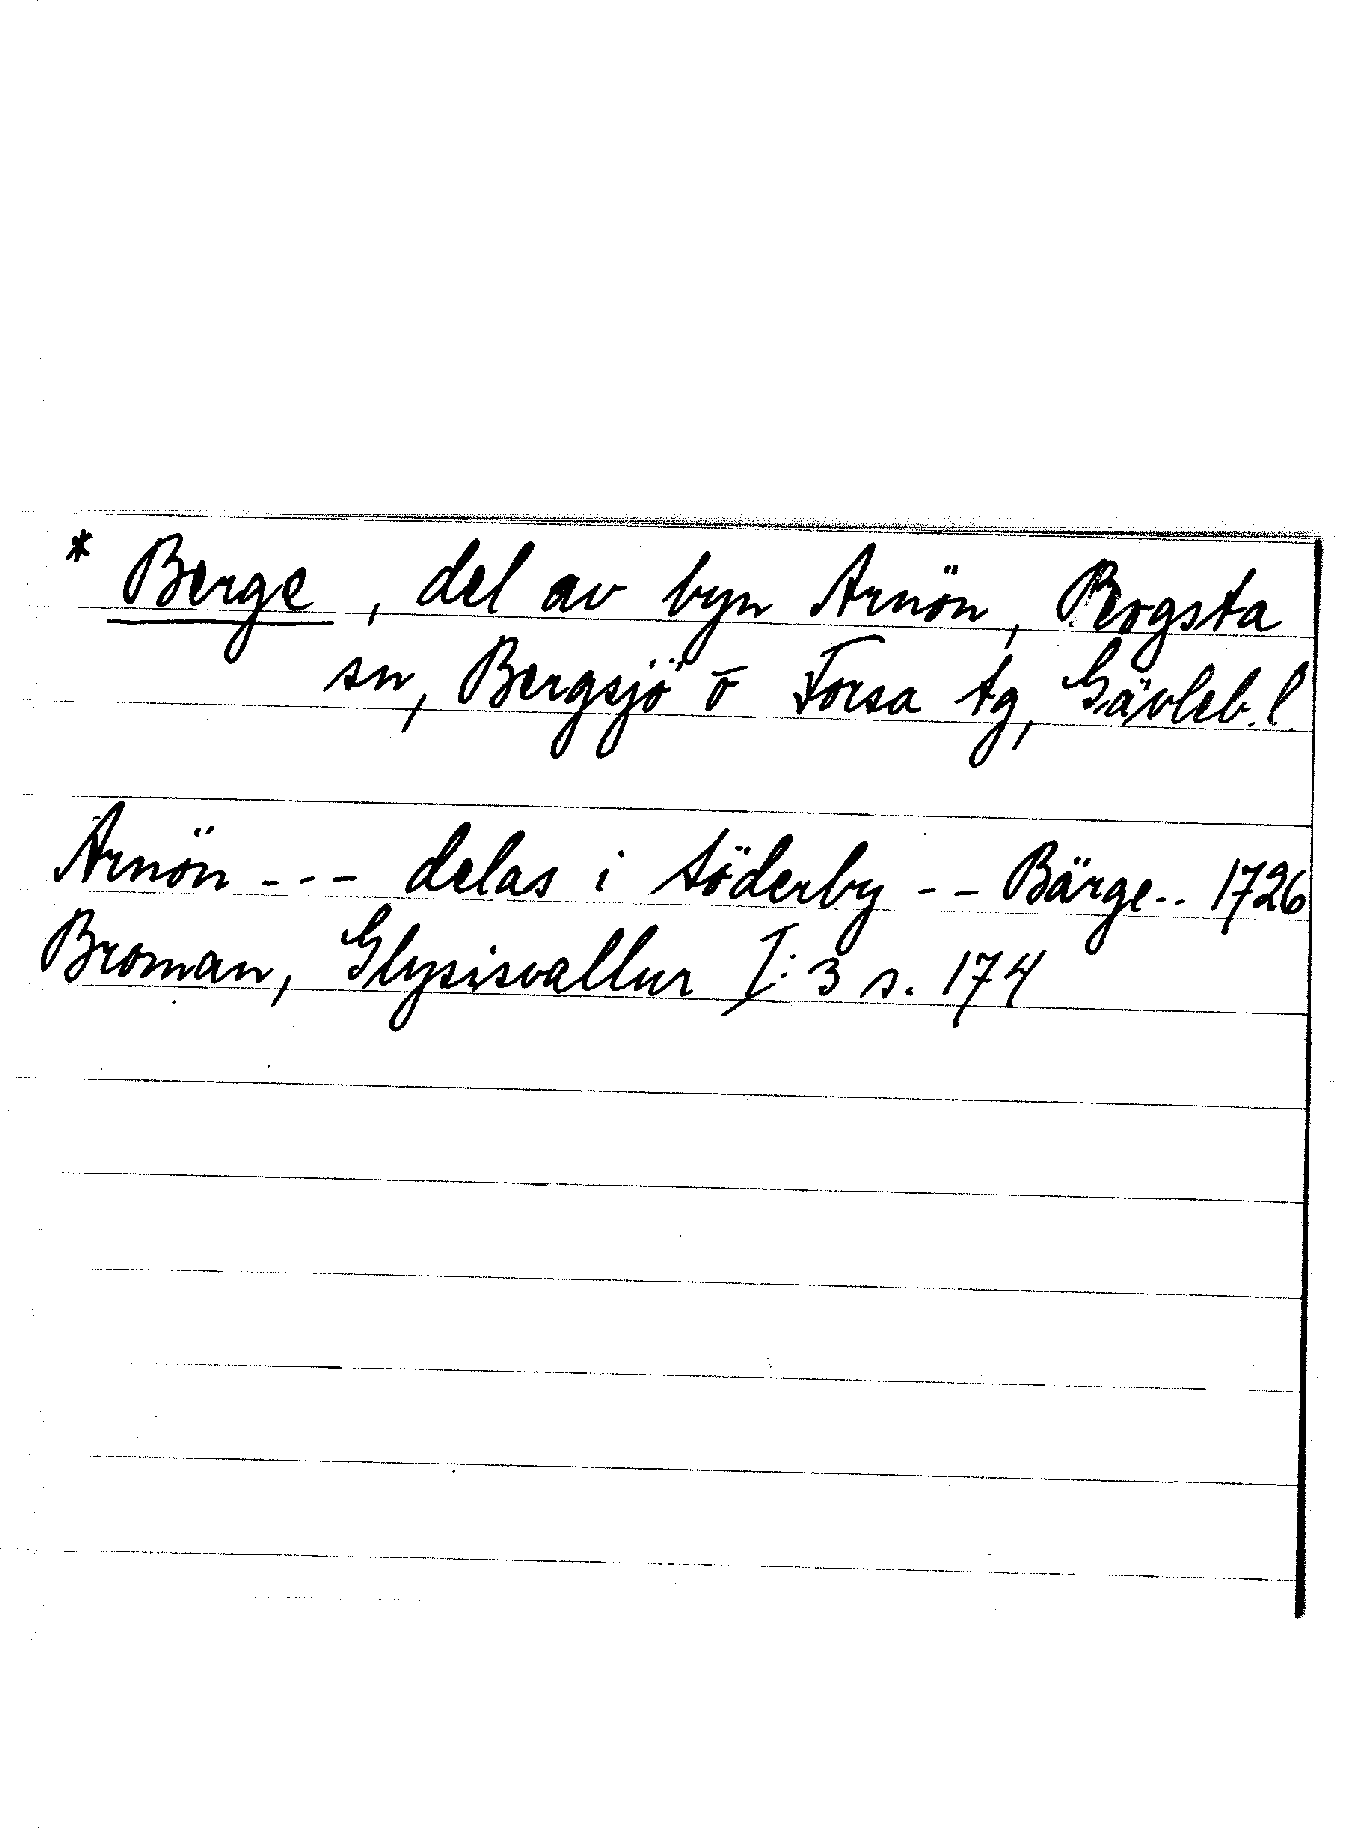 * Berge, del av byn Arnön, Rogsta
sn, Bergsjö o Forsa tg, Gävleb. l.
Arnön --- delas i söderby -- Bärge.. 1726
Broman, Glysisvallur I: 3 s. 174